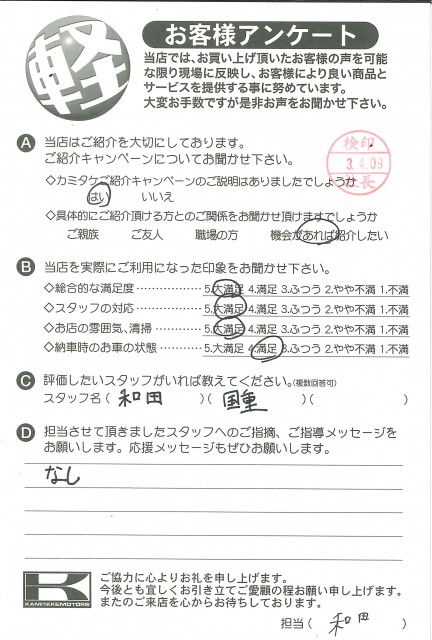 軽
お客様アンケート
当店では、お買い上げ頂いたお客様の声を可能
な限り現場に反映し、お客様により良い商品と
サービスを提供する事に努めています。
大変お手数ですが是非お声をお聞かせ下さい。
A 当店はご紹介を大切にしております。
ご紹介キャンペーンについてお聞かせ下さい。
検印
3.4.09
社長
◇カミタケご紹介キャンペーンのご説明はありましたでしょうか
はい いいえ
◇具体的にご紹介頂ける方とのご関係をお聞かせ頂けますでしょうか
ご親族 ご友人 職場の方 機会があれば紹介したい
B 当店を実際にご利用になった印象をお聞かせ下さい。
◇総合的な満足度 ……………… 5.大満足 4.満足 3.ふつう 2.やや不満 1.不満
◇スタッフの対応 ……………… 5.大満足 4.満足 3.ふつう 2.やや不満 1.不満
◇お店の雰囲気、清掃 ………… 5.大満足 4.満足 3.ふつう 2.やや不満 1.不満
◇納車時のお車の状態 ………… 5.大満足 4.満足 3.ふつう 2.やや不満 1.不満
C 評価したいスタッフがいれば教えてください。(複数回答可)
スタッフ名 ( 和田 )( 国重 )( )
D 担当させて頂きましたスタッフへのご指摘、ご指導メッセージを
お願いします。応援メッセージもぜひお願いします。
なし
K
KAMITAKEMOTORS
ご協力に心よりお礼を申し上げます。
今後とも宜しくお引き立てご愛顧の程お願い申し上げます。
またのご来店を心からお待ちしております。
担当 ( 和田 )